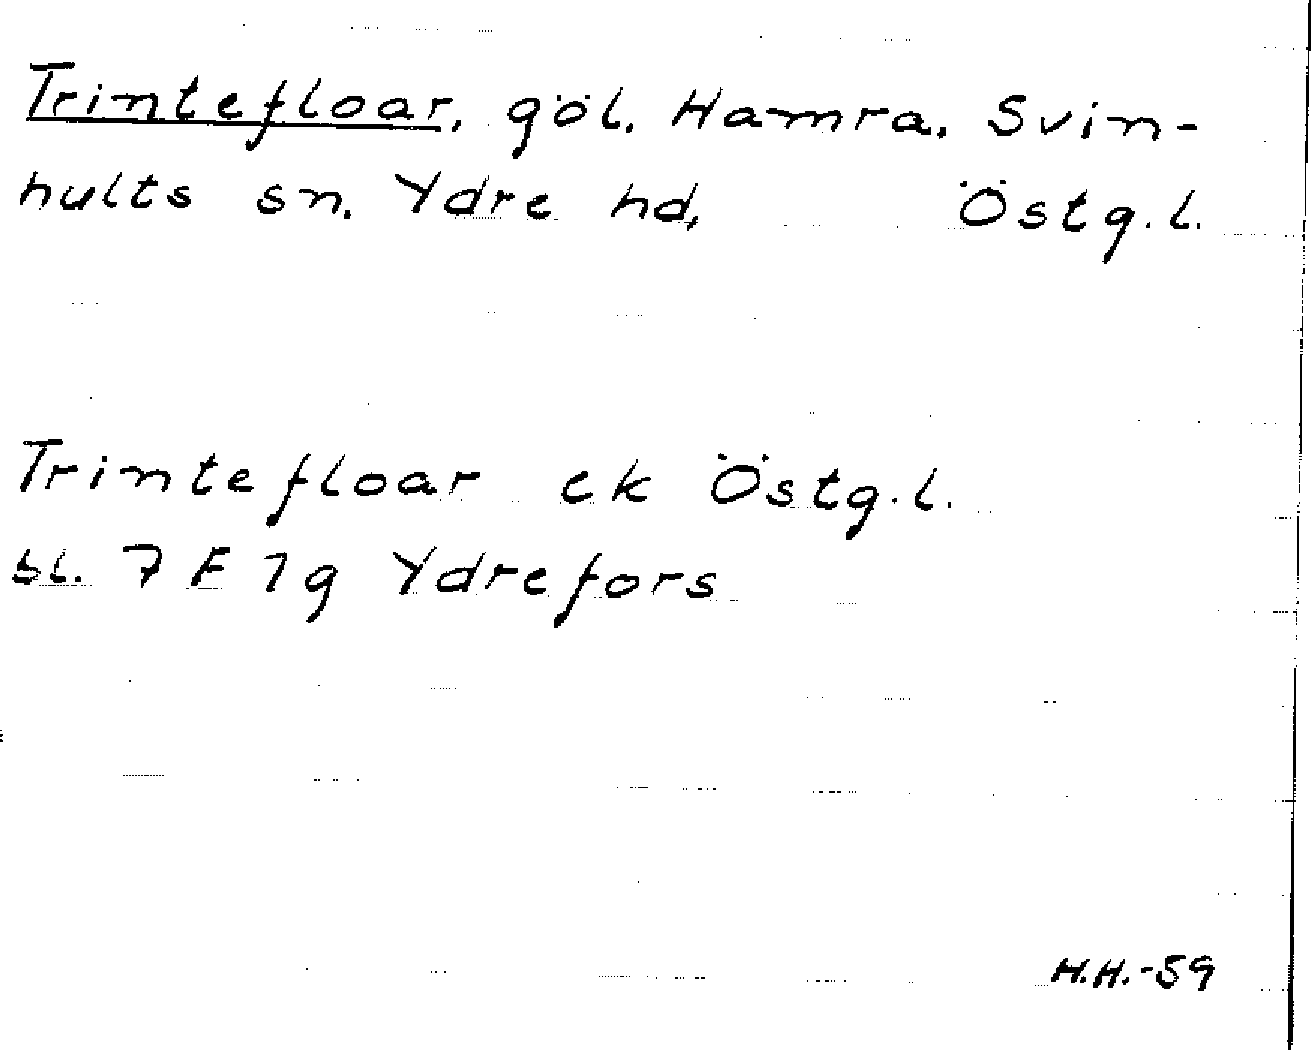 Trintefloar, göl. Hamra. Svin-
hults sn. Ydre hd, Östg.l.
Trintefloar ek Östg.l.
bl. 7 F 1g Ydrefors
H.H.-59